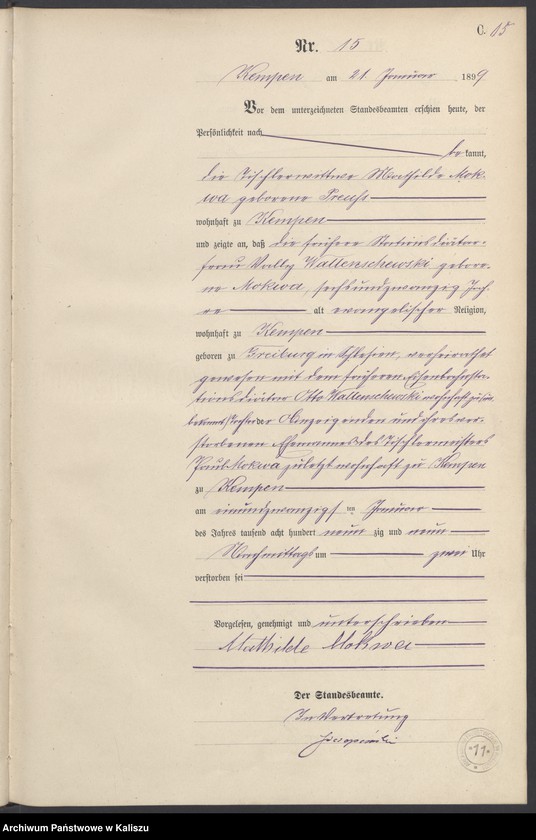 C. 15
Nr. 15
Kempen am 21 Januar 1899
Vor dem unterzeichneten Standesbeamten erschien heute, der
Persönlichkeit nach
be kannt,
die Tischlerwittwe Mathilde Mok-
wa geborene Preuß
wohnhaft zu Kempen
und zeigte an, daß die frühere Stationsdiätar-
frau Vally Waltenschewski gebore-
ne Mokwa, sechsundzwanzig Jah-
re alt evangelischer Religion,
wohnhaft zu Kempen
geboren zu Freiburg in Schlesien, verheirathet
gewesen mit dem früheren Eisenbahnsta-
tionsdiätar Otto Waltenschewski wohnhaft
Tochter der Anzeigenden und ihres ver-
storbenen Ehemannes des Tischlermeisters
Paul Mokwa zuletzt wohnhaft zu Kempen
zu Kempen
am einundzwanzigsten Januar
des Jahres tausend acht hundert neunzig und neun
Nachmittags um zwei Uhr
verstorben sei
Vorgelesen, genehmigt und unterschrieben
Mathilde Mokwa
Der Standesbeamte.
In Vertretung
*11*
Archiwum Państwowe w Kaliszu